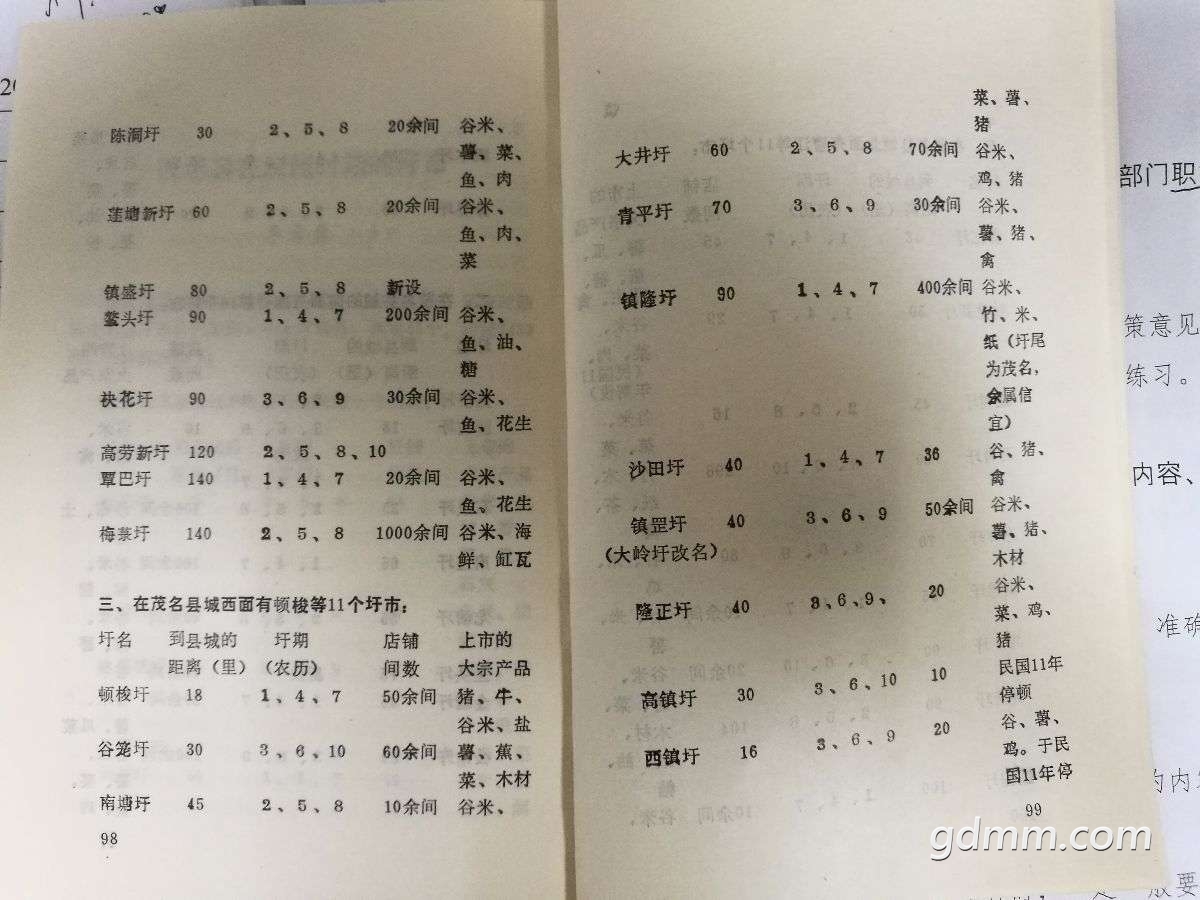 陈洞圩 30 2、5、8 20余间 谷米、
薯、菜、
鱼、肉
莲塘新圩 60 2、5、8 20余间 谷米、
鱼、肉、
菜
镇盛圩 80 2、5、8 新设
鳌头圩 90 1、4、7 200余间 谷米、
鱼、油、
糖
袂花圩 90 3、6、9 30余间 谷米、
鱼、花生
高劳新圩 120 2、5、8、10
覃巴圩 140 1、4、7 20余间 谷米、
鱼、花生
梅菉圩 140 2、5、8 1000余间 谷米、海
鲜、缸瓦
三、在茂名县城西面有顿梭等11个圩市：
圩名 到县城的 圩期 店铺 上市的
距离（里） （农历） 间数 大宗产品
顿梭圩 18 1、4、7 50余间 猪、牛、
谷米、盐
谷笼圩 30 3、6、10 60余间 薯、蕉、
菜、木材
南塘圩 45 2、5、8 10余间 谷米、
98
菜、薯、
猪
大井圩 60 2、5、8 70余间 谷米、
鸡、猪
青平圩 70 3、6、9 30余间 谷米、
薯、猪、
禽
镇隆圩 90 1、4、7 400余间 谷米、
竹、米、
纸（圩尾
为茂名，
余属信
宜）
沙田圩 40 1、4、7 36 谷、猪、
禽
镇罡圩 40 3、6、9 50余间 谷米、
（大岭圩改名） 薯、猪、
木材
隆正圩 40 3、6、9、 20 谷米、
菜、鸡、
猪
高镇圩 30 3、6、10 10 民国11年
停顿
西镇圩 16 3、6、9 20 谷、薯、
鸡。于民
国11年停
99
部门职
策意见
练习。
内容、
准确
的内容
般要
gdmm.com